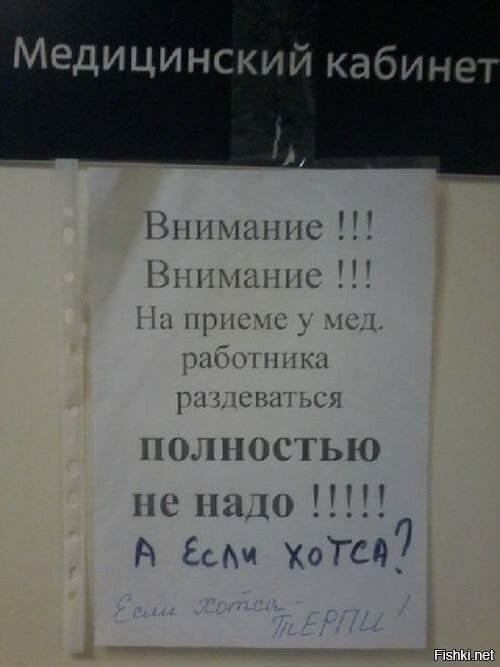 Медицинский кабинет
Внимание !!!
Внимание !!!
На приеме у мед.
работника
раздеваться
полностью
не надо !!!!!
А Если хотса?
Если хотса -
ТЕРПИ!
Fishki.net